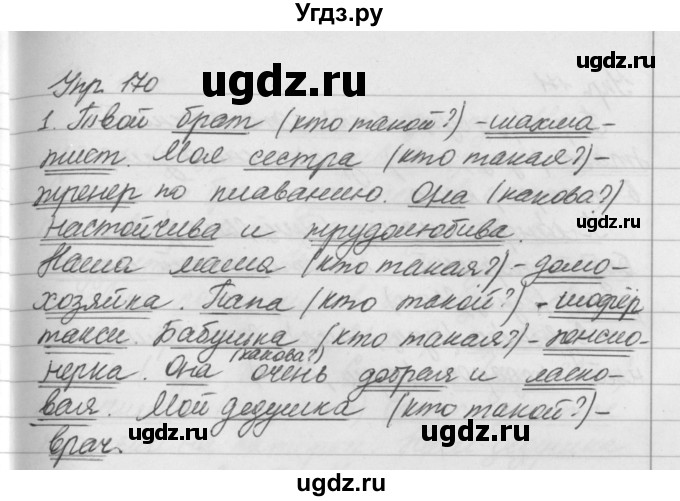 Угдз.ру
Упр. 170
ugdz.ru
1. Твой брат (кто такой?) - шахма-
тист. Моя сестра (кто такая?) -
тренер по плаванию. Она (какова?)
настойчива и трудолюбива.
ugdz.ru
Наша мама (кто такая?) - домо-
хозяйка. Папа (кто такой?) - шофёр
такси. Бабушка (кто такая?) - пенсио-
(какова?)
нерка. Она очень добрая и ласко-
вая. Мой дедушка (кто такой?) -
врач.
ugdz.ru
ugdz.ru
ugdz.ru
Угдз.ру